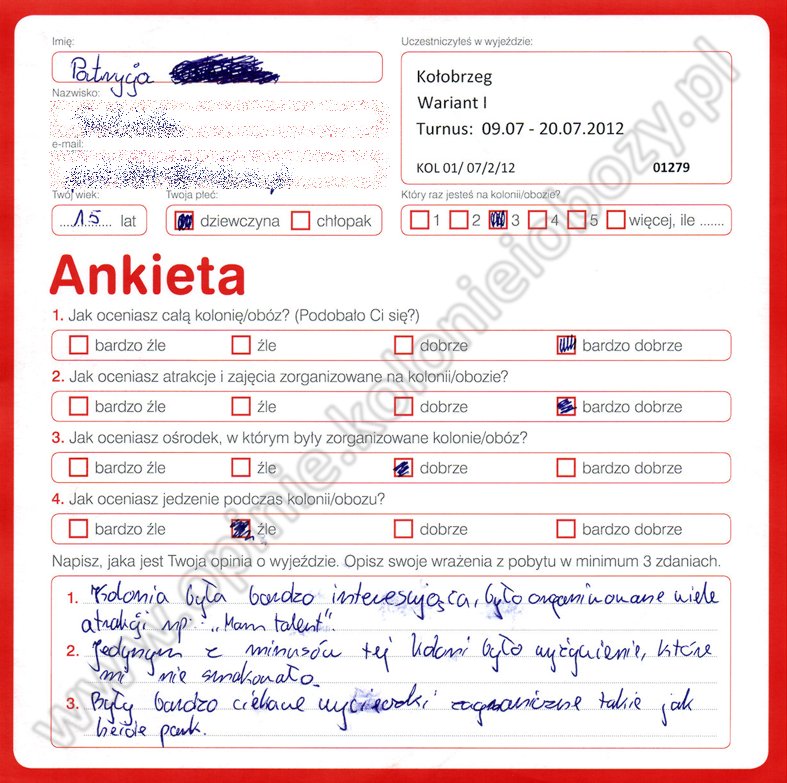 Imię:
Patrycja
Nazwisko:
e-mail:
Twój wiek:
15 lat
Twoja płeć:
dziewczyna chłopak
Uczestniczyłeś w wyjeździe:
Kołobrzeg
Wariant I
Turnus: 09.07 - 20.07.2012
KOL 01/ 07/2/12 01279
Który raz jesteś na kolonii/obozie?
1 2 3 4 5 więcej, ile .......
Ankieta
1. Jak oceniasz całą kolonię/obóz? (Podobało Ci się?)
bardzo źle źle dobrze bardzo dobrze
2. Jak oceniasz atrakcje i zajęcia zorganizowane na kolonii/obozie?
bardzo źle źle dobrze bardzo dobrze
3. Jak oceniasz ośrodek, w którym były zorganizowane kolonie/obóz?
bardzo źle źle dobrze bardzo dobrze
4. Jak oceniasz jedzenie podczas kolonii/obozu?
bardzo źle źle dobrze bardzo dobrze
Napisz, jaka jest Twoja opinia o wyjeździe. Opisz swoje wrażenia z pobytu w minimum 3 zdaniach.
1. Kolonia była bardzo interesująca, było organizowane wiele
atrakcji np. "Mam talent".
2. Jedynym z minusów tej koloni było wyżywienie, które
mi nie smakowało.
3. Były bardzo ciekawe wycieczki zagraniczne takie jak
heide park.
www.opinie.kolonieiobozy.pl